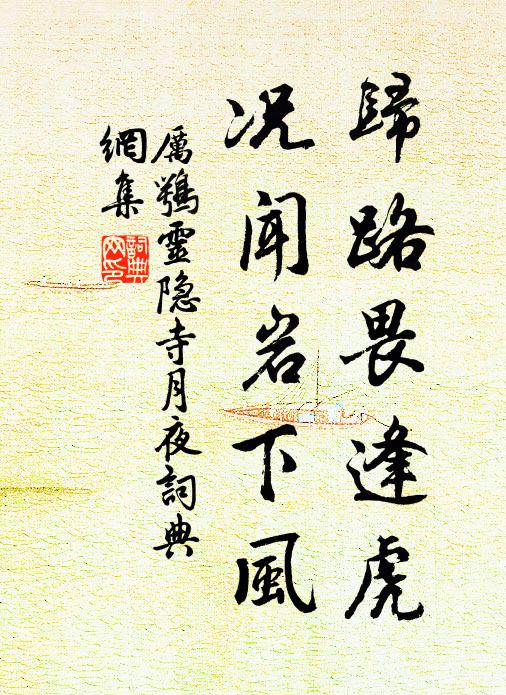 歸路畏逢虎
况聞岩下風
厲鶚靈隐寺月夜詞典
網集
詞典
网印